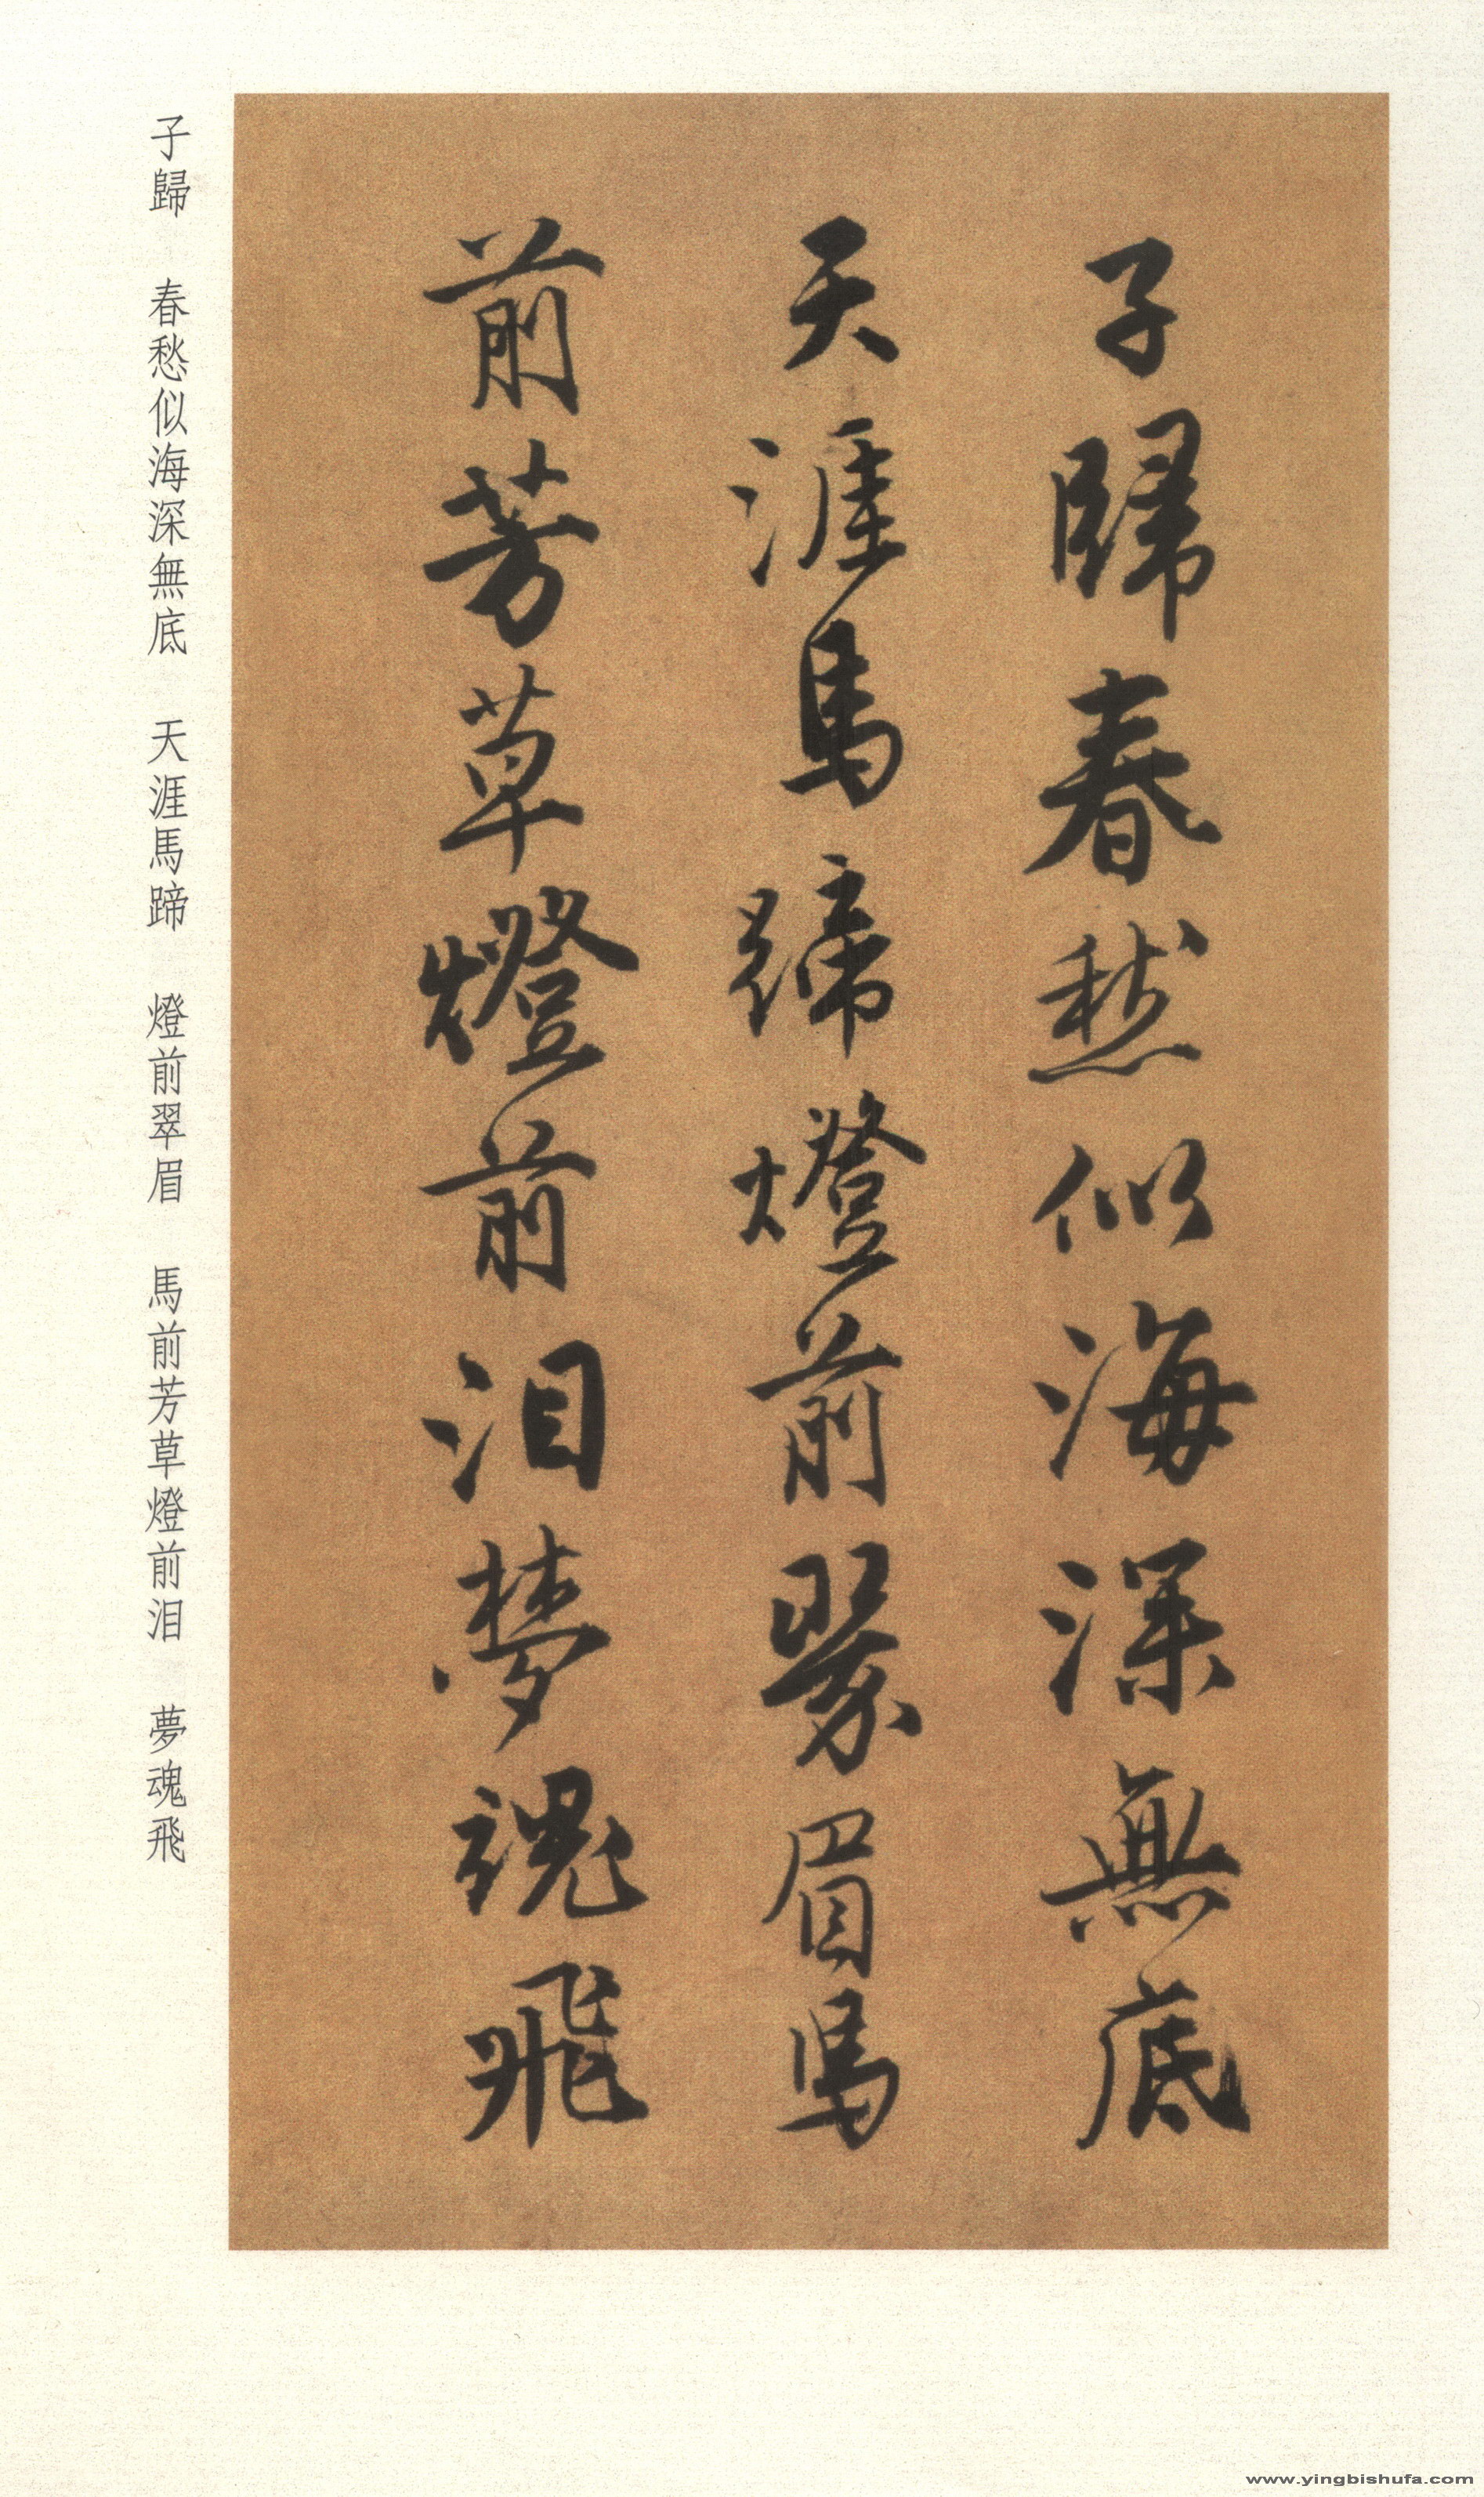 子歸春愁似海深無底
天涯馬蹄燈前翠眉馬
前芳草燈前泪夢魂飛
子歸 春愁似海深無底 天涯馬蹄 燈前翠眉 馬前芳草燈前泪 夢魂飛
www.yingbishufa.com